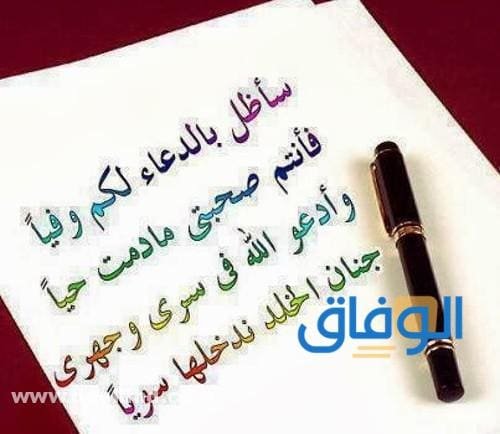 سأظل بالدعاء لكم وفياً
فأنتم صحبتى مادمت حياً
وأدعو الله فى سرى وجهرى
جنان الخلد ندخلها سوياً
الوفاق
www.